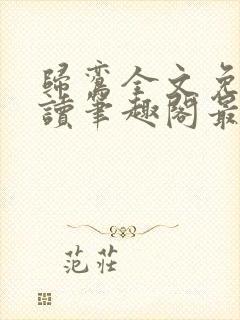 歸鸞全文免
讀筆趣閣最
范莊